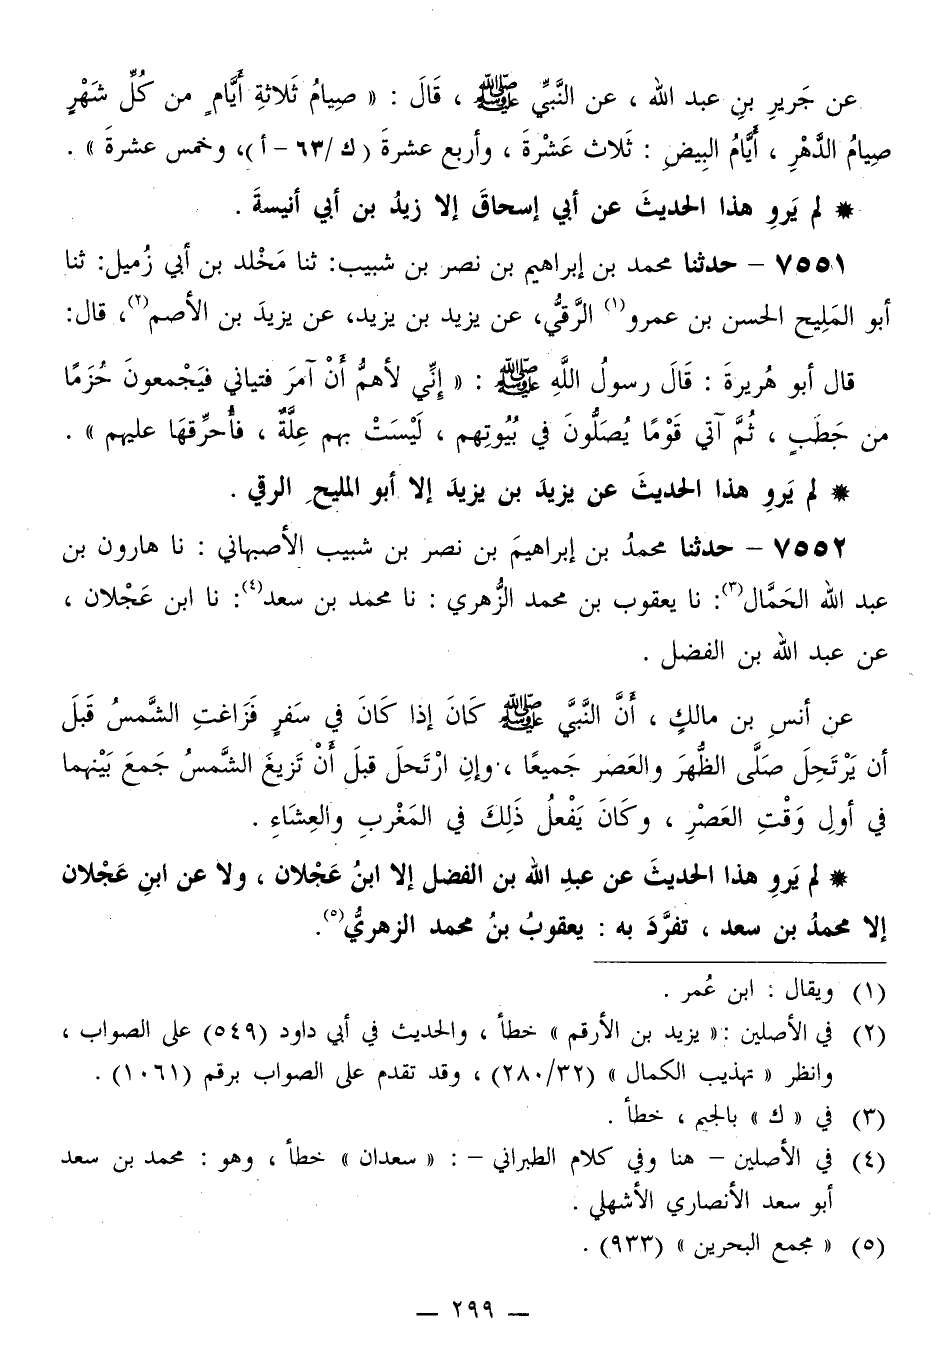 عن جَريرِ بنِ عبد الله ، عن النَّبيِّ ﷺ ، قَالَ : « صيامُ ثَلاثةِ أَيَّامٍ من كُلِّ شَهْرٍ
صيامُ الدَّهْرِ ، أَيَّامُ البيضِ : ثَلاث عَشْرةَ ، وأربع عشرةَ ( ك /٦٣ – أ )، وخمس عشرةَ » .
* لم يَروِ هذا الحديثَ عن أبي إسحاقَ إلا زيدُ بن أبي أنيسةَ .
٧٥٥١ – حدثنا محمد بن إبراهيم بن نصر بن شبيب: ثنا مَخْلد بن أبي زُميل: ثنا
أبو المَلِيح الحسن بن عمرو(١) الرَّقيُّ، عن يزيد بن يزيد، عن يزيدَ بن الأصم(٢)، قال:
قال أبو هُريرةَ : قَالَ رسولُ اللَّهِ ﷺ : « إنِّي لأهمُّ أَنْ آمرَ فتياني فيَجْمعونَ حُزَمًا
من حَطَبٍ ، ثُمَّ آتي قَوْمًا يُصَلُّونَ في بُيُوتِهم ، لَيْسَتْ بهم عِلَّةٌ ، فأُحرِّقهَا عليهم » .
* لم يَروِ هذا الحديثَ عن يزيدَ بن يزيدَ إلا أبو المليحِ الرقي .
٧٥٥٢ – حدثنا محمدُ بن إبراهيمَ بن نصر بن شبيب الأصبهاني : نا هارون بن
عبد الله الحَمَّال(٣): نا يعقوب بن محمد الزُّهري : نا محمد بن سعد(٤): نا ابن عَجْلان ،
عن عبد الله بن الفضل .
عن أنسِ بن مالكٍ ، أَنَّ النَّبيَّ ﷺ كَانَ إذا كَانَ في سَفرٍ فَزَاغتِ الشَّمسُ قَبلَ
أن يَرْتَحِلَ صَلَّى الظُّهرَ والعَصر جَميعًا ، وإنِ ارْتَحلَ قبلَ أَنْ تَزيغَ الشَّمسُ جَمعَ بَيْنهما
في أولِ وَقْتِ العَصْرِ ، وكَانَ يَفْعلُ ذَلِكَ في المَغْربِ والعِشَاءِ .
* لم يَروِ هذا الحديثَ عن عبدِ الله بن الفضل إلا ابنُ عَجْلان ، ولا عن ابنِ عَجْلان
إلا محمدُ بن سعد ، تفرَّدَ به : يعقوبُ بنُ محمد الزهريُّ(٥).
(١) ويقال : ابن عُمر .
(٢) في الأصلين :« يزيد بن الأرقم » خطأ ، والحديث في أبي داود (٥٤٩) على الصواب ،
وانظر « تهذيب الكمال » (٢٨٠/٣٢) ، وقد تقدم على الصواب برقم (١٠٦١) .
(٣) في « ك » بالجيم ، خطأ .
(٤) في الأصلين – هنا وفي كلام الطبراني – : « سعدان » خطأ ، وهو : محمد بن سعد
أبو سعد الأنصاري الأشهلي .
(٥) « مجمع البحرين » (٩٣٣) .
— ٢٩٩ —